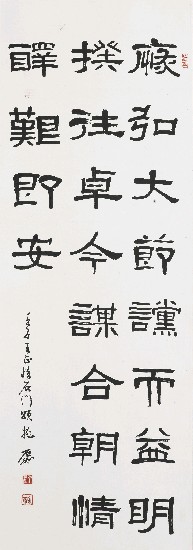 恢弘大節讜而益明
揆往卓今謀合朝情
醳艱即安
石门頌